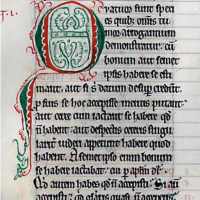 Q uatuor sunt speci
es quib; om̄is tu
mor arrogantium
demonstratur. cū
bonum aut a semet
ipsis habere se esti
mant. aut si sibi datum desup̄ credunt
p̱ suis se hoc accepisse meritis putant.
aut certe cum iactant se habere qd̄
n̄ habent. aut despectis ceteris singu
lariter uideri appetunt habere quod
habent. A semet ipso enim bonum
se habere iactabat. cui p̱ apl̄m dr̄.
Qd̄ autem habes qd̄ n̄ accepisti. Si aut̄
accepisti: qd̄ gl̄aris quasi non acceperis